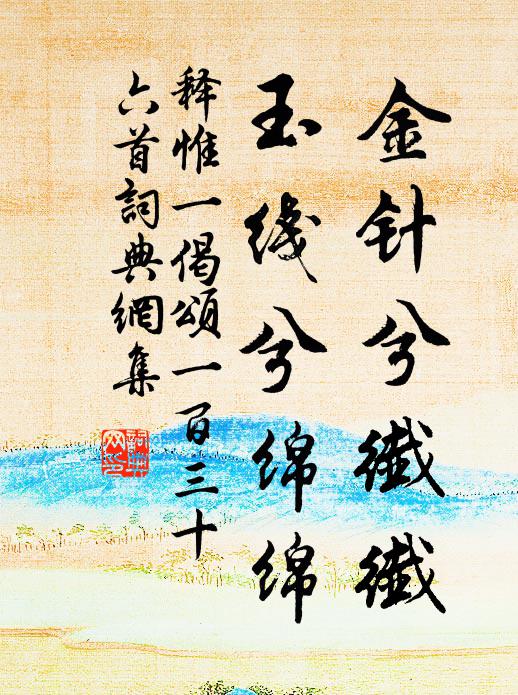 金针兮纎纎
玉线兮绵绵
释惟一偈頌一百三十
六首詞典網集